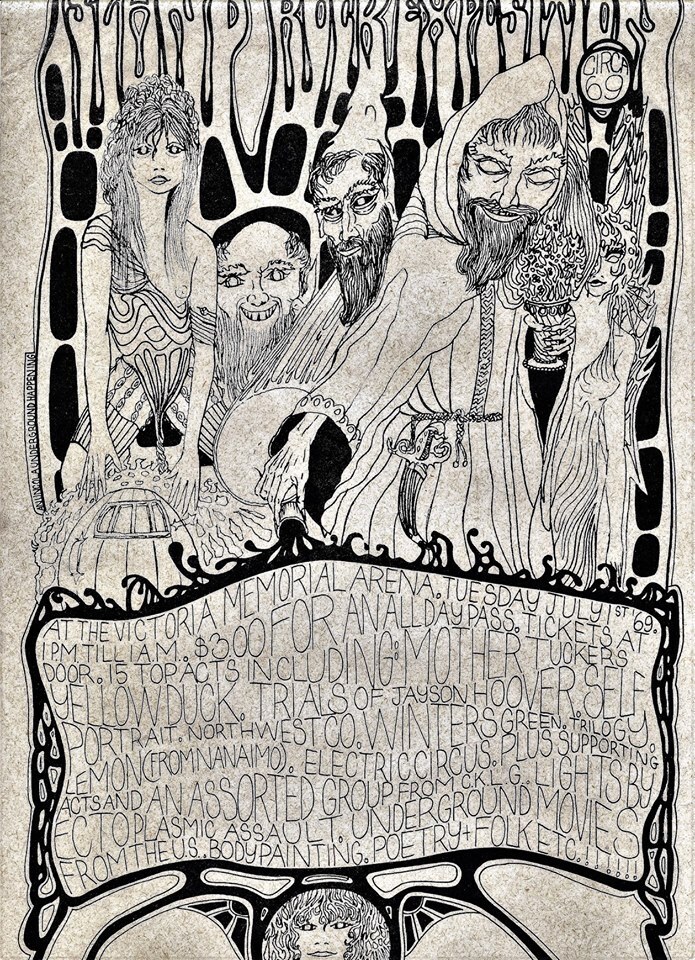 ISLAND ROCK EXPOSITION
CIRCA
69
AT THE VICTORIA MEMORIAL ARENA. TUESDAY JULY 1ST 69.
1 P.M TILL 1 A.M. $3.00 FOR AN ALL DAY PASS. TICKETS AT
DOOR. 15 TOP ACTS INCLUDING: MOTHER TUCKERS
YELLOW DUCK. TRIALS OF JAYSON HOOVER. SELF
PORTRAIT. NORTHWEST CO. WINTERS GREEN. TRILOGY.
LEMON (FROM NANAIMO). ELECTRIC CIRCUS. PLUS SUPPORTING
ACTS AND AN ASSORTED GROUP FROM C.K.L.G. LIGHTS BY
ECTOPLASMIC ASSAULT. UNDERGROUND MOVIES
FROM THE U.S. BODY PAINTING. POETRY + FOLK ETC......!!!
UNDERGROUND HAPPENING